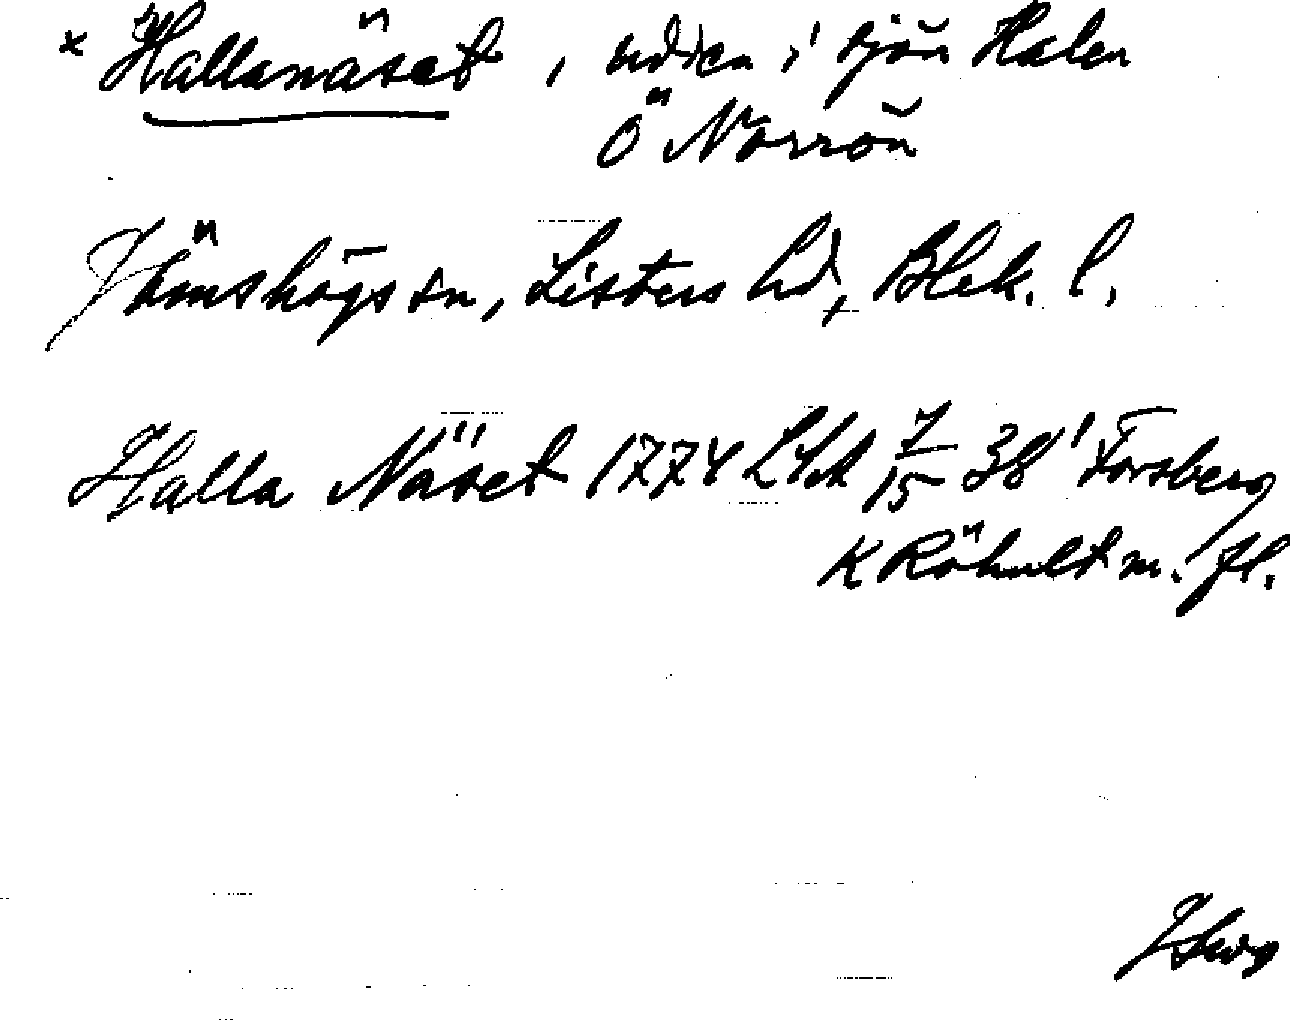 × Hallanäset, udden i sjön Halen
Ö Norrön
Jämshögs sn, Listers hd, Blek. l.
Halla Näset 1774 LStA 7/15 38' Forsberg
K Röhult m. fl.